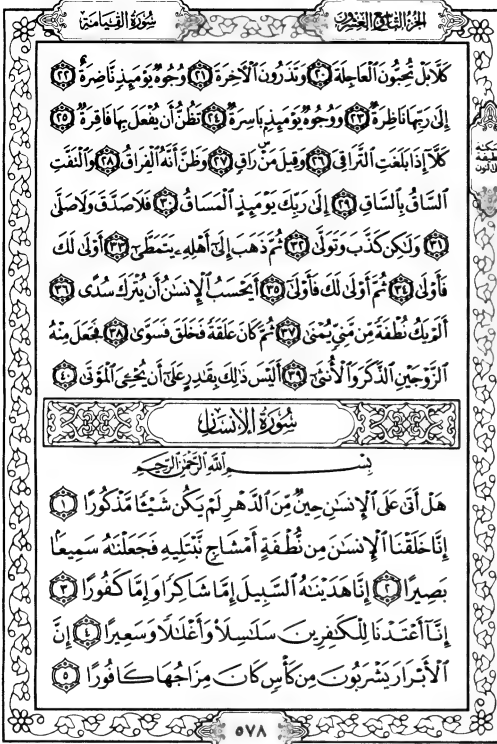 سُورَةُ القِيَامَةِ
الجزء التاسع والعشرون
كَلَّا بَلْ تُحِبُّونَ ٱلْعَاجِلَةَ ٢٠ وَتَذَرُونَ ٱلْأَخِرَةَ ٢١ وُجُوهٌ يَوْمَئِذٍ نَّاضِرَةٌ ٢٢
إِلَىٰ رَبِّهَا نَاظِرَةٌ ٢٣ وَوُجُوهٌ يَوْمَئِذٍۭ بَاسِرَةٌ ٢٤ تَظُنُّ أَن يُفْعَلَ بِهَا فَاقِرَةٌ ٢٥
كَلَّآ إِذَا بَلَغَتِ ٱلتَّرَاقِىَ ٢٦ وَقِيلَ مَنْۜ رَاقٍ ٢٧ وَظَنَّ أَنَّهُ ٱلْفِرَاقُ ٢٨ وَٱلْتَفَّتِ
ٱلسَّاقُ بِٱلسَّاقِ ٢٩ إِلَىٰ رَبِّكَ يَوْمَئِذٍ ٱلْمَسَاقُ ٣٠ فَلَا صَدَّقَ وَلَا صَلَّىٰ
٣١ وَلَٰكِن كَذَّبَ وَتَوَلَّىٰ ٣٢ ثُمَّ ذَهَبَ إِلَىٰٓ أَهْلِهِۦ يَتَمَطَّىٰٓ ٣٣ أَوْلَىٰ لَكَ
فَأَوْلَىٰ ٣٤ ثُمَّ أَوْلَىٰ لَكَ فَأَوْلَىٰٓ ٣٥ أَيَحْسَبُ ٱلْإِنسَٰنُ أَن يُتْرَكَ سُدًى ٣٦
أَلَمْ يَكُ نُطْفَةً مِّن مَّنِىٍّ يُمْنَىٰ ٣٧ ثُمَّ كَانَ عَلَقَةً فَخَلَقَ فَسَوَّىٰ ٣٨ فَجَعَلَ مِنْهُ
ٱلزَّوْجَيْنِ ٱلذَّكَرَ وَٱلْأُنثَىٰٓ ٣٩ أَلَيْسَ ذَٰلِكَ بِقَٰدِرٍ عَلَىٰٓ أَن يُحْـِۧىَ ٱلْمَوْتَىٰ ٤٠
سُورَةُ الإِنسَانِ
بِسْمِ ٱللَّهِ ٱلرَّحْمَٰنِ ٱلرَّحِيمِ
هَلْ أَتَىٰ عَلَى ٱلْإِنسَٰنِ حِينٌ مِّنَ ٱلدَّهْرِ لَمْ يَكُن شَيْـًٔا مَّذْكُورًا ١
إِنَّا خَلَقْنَا ٱلْإِنسَٰنَ مِن نُّطْفَةٍ أَمْشَاجٍ نَّبْتَلِيهِ فَجَعَلْنَٰهُ سَمِيعًۢا
بَصِيرًا ٢ إِنَّا هَدَيْنَٰهُ ٱلسَّبِيلَ إِمَّا شَاكِرًا وَإِمَّا كَفُورًا ٣
إِنَّآ أَعْتَدْنَا لِلْكَٰفِرِينَ سَلَٰسِلَا۟ وَأَغْلَٰلًا وَسَعِيرًا ٤ إِنَّ
ٱلْأَبْرَارَ يَشْرَبُونَ مِن كَأْسٍ كَانَ مِزَاجُهَا كَافُورًا ٥
٥٧٨